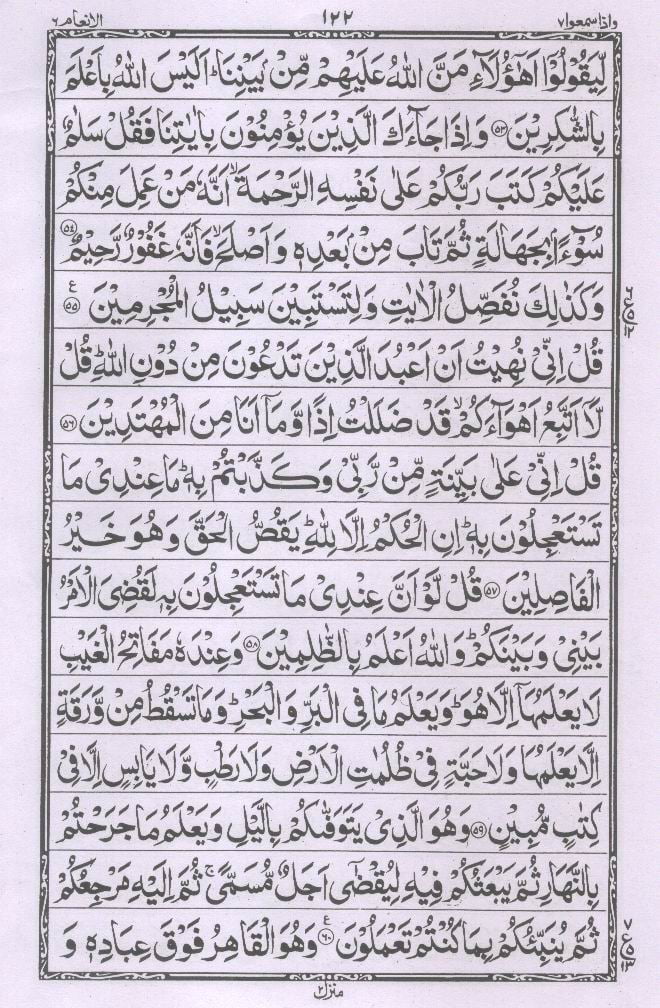 واذا سمعوا ٧ ١٢٢ الانعام ٦
لِّيَقُوْلُوْۤا اَهٰۤؤُلَآءِ مَنَّ اللّٰهُ عَلَيْهِمْ مِّنْۢ بَيْنِنَا ؕ اَلَيْسَ اللّٰهُ بِاَعْلَمَ
بِالشّٰكِرِيْنَ ﴿٥٣﴾ وَاِذَا جَآءَكَ الَّذِيْنَ يُؤْمِنُوْنَ بِاٰيٰتِنَا فَقُلْ سَلٰمٌ
عَلَيْكُمْ كَتَبَ رَبُّكُمْ عَلٰى نَفْسِهِ الرَّحْمَةَ ۙ اَنَّهٗ مَنْ عَمِلَ مِنْكُمْ
سُوْٓءًۢا بِجَهَالَةٍ ثُمَّ تَابَ مِنْۢ بَعْدِهٖ وَاَصْلَحَ ۙ فَاَنَّهٗ غَفُوْرٌ رَّحِيْمٌ ﴿٥٤﴾
وَكَذٰلِكَ نُفَصِّلُ الْاٰيٰتِ وَلِتَسْتَبِيْنَ سَبِيْلُ الْمُجْرِمِيْنَ ﴿٥٥﴾ ع
قُلْ اِنِّيْ نُهِيْتُ اَنْ اَعْبُدَ الَّذِيْنَ تَدْعُوْنَ مِنْ دُوْنِ اللّٰهِ ؕ قُلْ
لَّاۤ اَتَّبِعُ اَهْوَآءَكُمْ ۙ قَدْ ضَلَلْتُ اِذًا وَّمَاۤ اَنَا مِنَ الْمُهْتَدِيْنَ ﴿٥٦﴾
قُلْ اِنِّيْ عَلٰى بَيِّنَةٍ مِّنْ رَّبِّيْ وَكَذَّبْتُمْ بِهٖ ؕ مَا عِنْدِيْ مَا
تَسْتَعْجِلُوْنَ بِهٖ ؕ اِنِ الْحُكْمُ اِلَّا لِلّٰهِ ؕ يَقُصُّ الْحَقَّ وَهُوَ خَيْرُ
الْفَاصِلِيْنَ ﴿٥٧﴾ قُلْ لَّوْ اَنَّ عِنْدِيْ مَا تَسْتَعْجِلُوْنَ بِهٖ لَقُضِيَ الْاَمْرُ
بَيْنِيْ وَبَيْنَكُمْ ؕ وَاللّٰهُ اَعْلَمُ بِالظّٰلِمِيْنَ ﴿٥٨﴾ وَعِنْدَهٗ مَفَاتِحُ الْغَيْبِ
لَا يَعْلَمُهَاۤ اِلَّا هُوَ ؕ وَيَعْلَمُ مَا فِي الْبَرِّ وَالْبَحْرِ ؕ وَمَا تَسْقُطُ مِنْ وَّرَقَةٍ
اِلَّا يَعْلَمُهَا وَلَا حَبَّةٍ فِيْ ظُلُمٰتِ الْاَرْضِ وَلَا رَطْبٍ وَّلَا يَابِسٍ اِلَّا فِيْ
كِتٰبٍ مُّبِيْنٍ ﴿٥٩﴾ وَهُوَ الَّذِيْ يَتَوَفّٰىكُمْ بِالَّيْلِ وَيَعْلَمُ مَا جَرَحْتُمْ
بِالنَّهَارِ ثُمَّ يَبْعَثُكُمْ فِيْهِ لِيُقْضٰۤى اَجَلٌ مُّسَمًّى ۚ ثُمَّ اِلَيْهِ مَرْجِعُكُمْ
ثُمَّ يُنَبِّئُكُمْ بِمَا كُنْتُمْ تَعْمَلُوْنَ ﴿٦٠﴾ ع وَهُوَ الْقَاهِرُ فَوْقَ عِبَادِهٖ وَ
منزل ٢